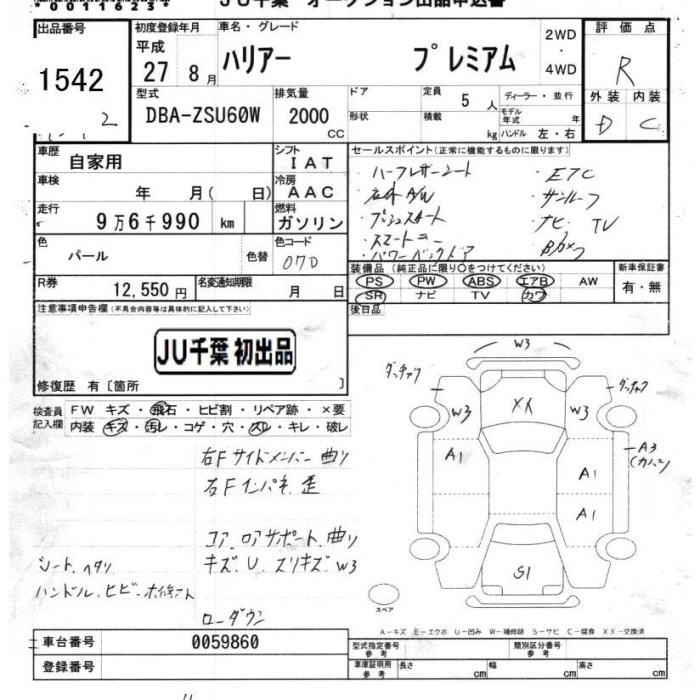 JU千葉 オークション出品申込書
出品番号
1542
2
初度登録年月
平成
27 8月
車名・グレード
ハリアー プレミアム
2WD
・
4WD
評価点
R
外装 内装
D C
型式
DBA-ZSU60W
排気量
2000
CC
ドア
形状
定員 5 人
積載 kg
ディーラー・並行
モデル年式 年
ハンドル 左・右
車歴
自家用
シフト
IAT
車検
年 月( 日)
冷房
AAC
走行
9万6千990 km
燃料
ガソリン
色
パール
色替
色コード
070
R券
12,550円
名変通知期限
月 日
セールスポイント(正常に機能するものに限ります)
・ハーフレザーシート ・ETC
・社外A/W ・サンルーフ
・プッシュスタート ・ナビ・TV
・スマートキー ・Bカメラ
・パワーバックドア
装備品(純正品に限り○をつけてください)
PS PW ABS エアB AW
SR ナビ TV カワ
新車保証書
有・無
後日品
注意事項申告欄(不具合内容等は具体的に記入して下さい)
JU千葉 初出品
修復歴 有〔箇所 〕
検査員
記入欄
FW キズ・飛石・ヒビ割・リペア跡・×要
内装 キズ・汚レ・コゲ・穴・スレ・キレ・破レ
右Fサイドメンバー曲り
右Fインパネ歪
コア、ロアサポート、曲り
キズ、U、スリキズW3
シート、ヘタリ
ハンドル、ヒビ・
ローダウン
W3
ダッチャク
ダッチャク
W3
XX
W3
A1
A1
A3
A1
S1
スペア
A-キズ E-エクボ U-凹み W-補修跡 S-サビ C-腐食 XX-交換済
車台番号
0059860
登録番号
型式指定番号
参考
類別区分番号
参考
車庫証明用
参考
長さ cm
幅 cm
高さ cm